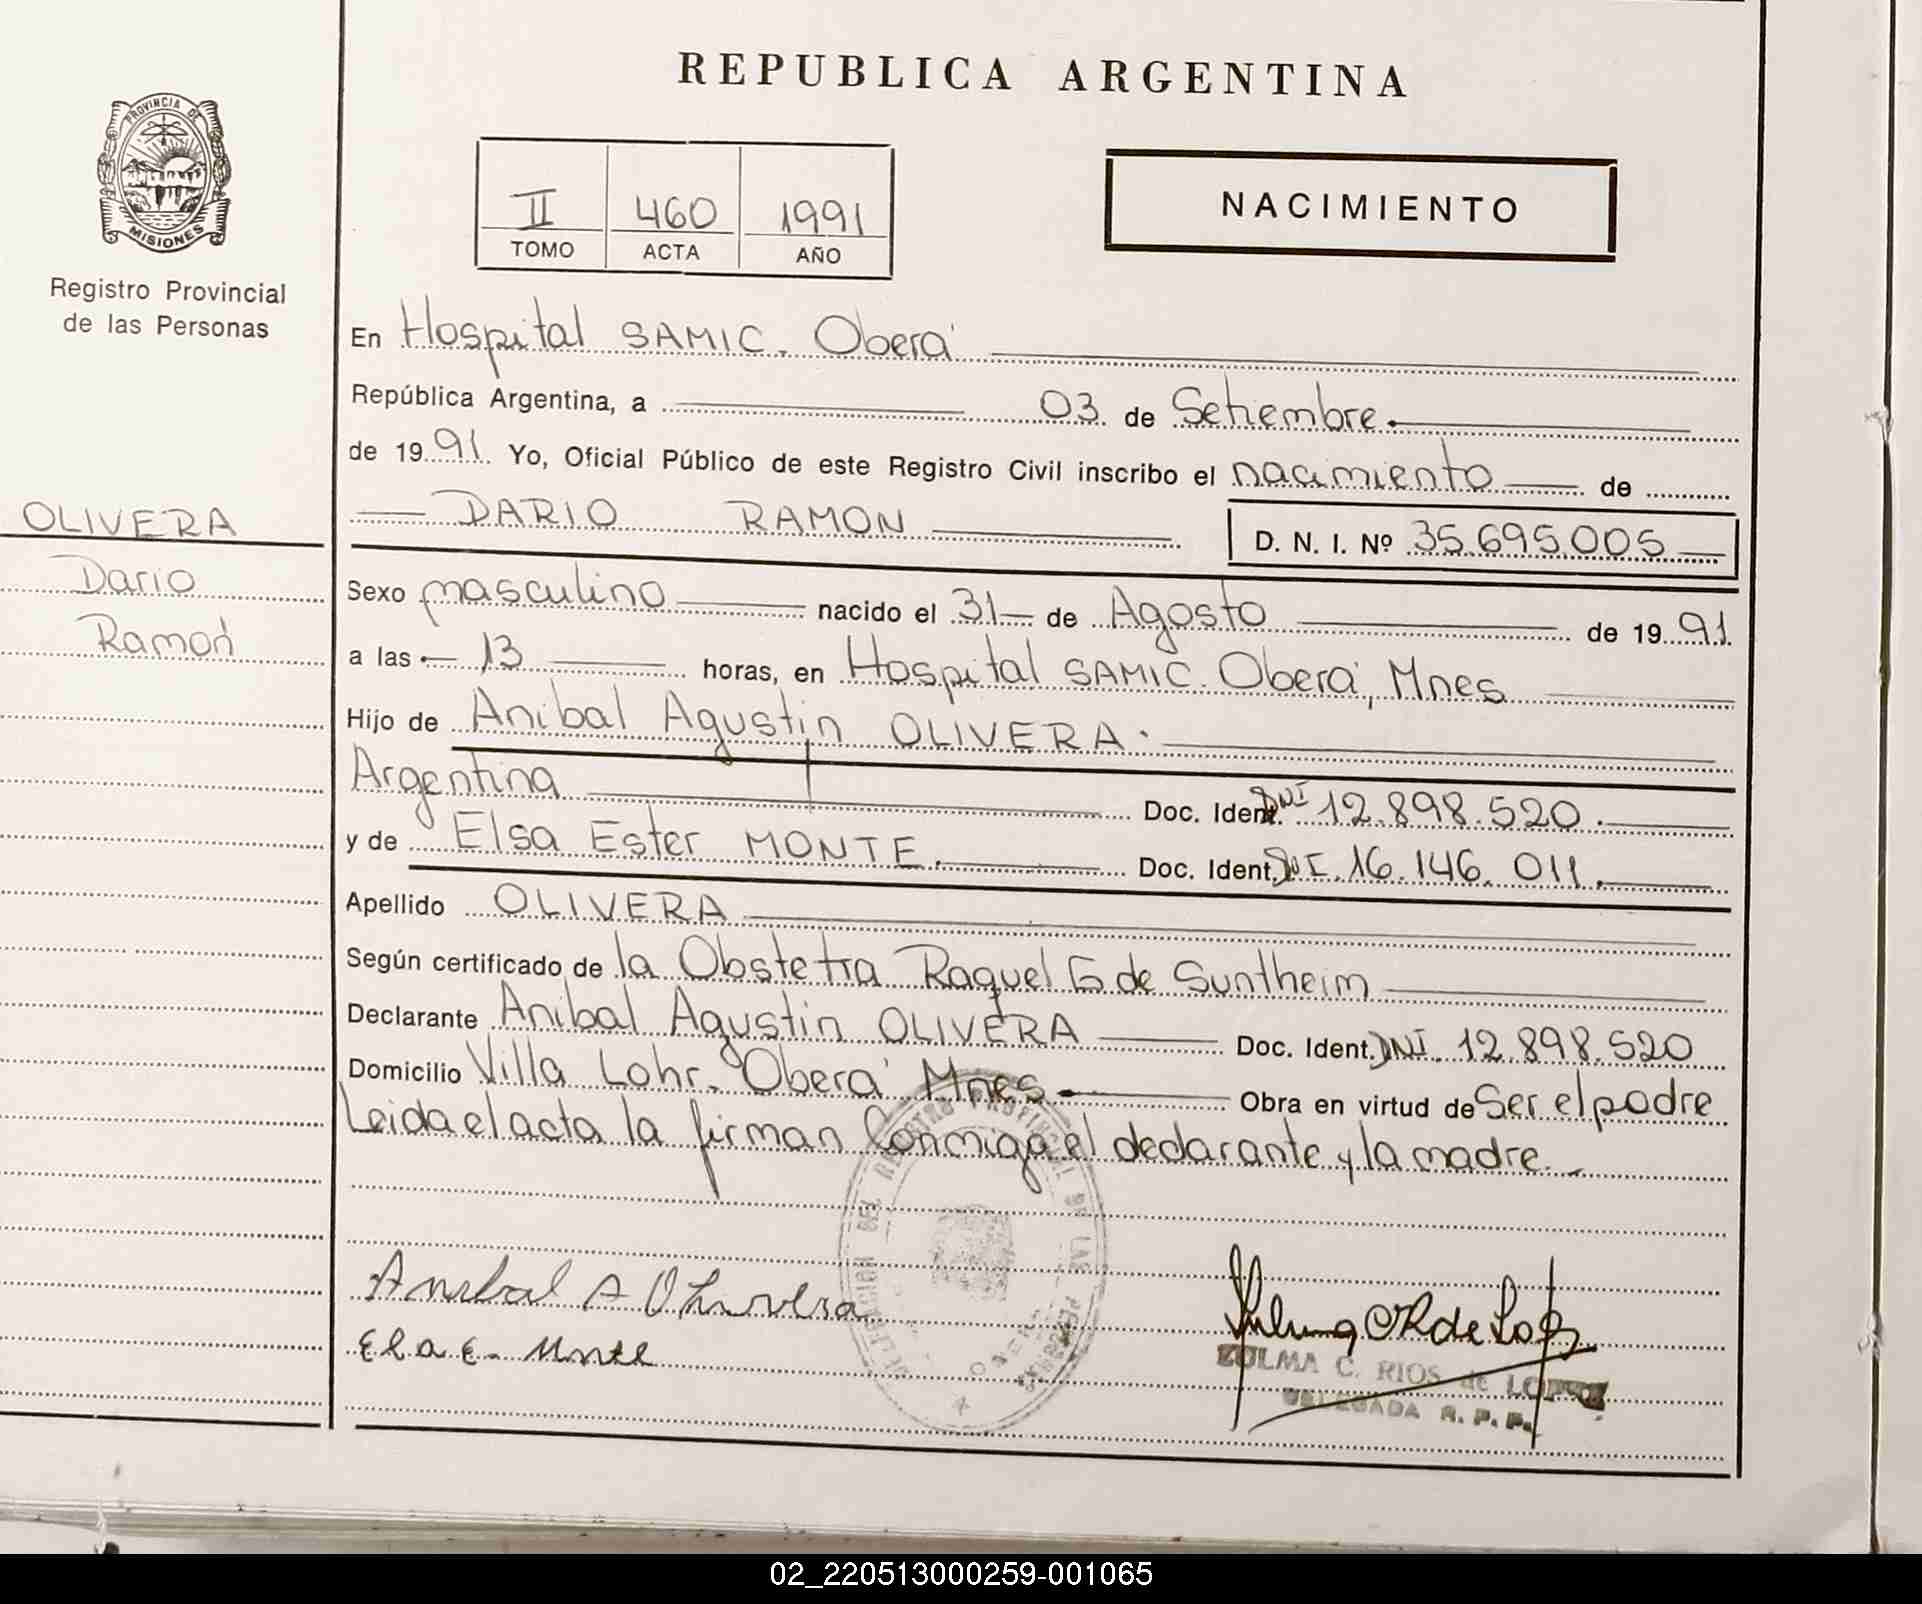 REPUBLICA ARGENTINA
PROVINCIA DE
MISIONES
Registro Provincial
de las Personas
II 460 1991
TOMO ACTA AÑO
NACIMIENTO
OLIVERA
Dario
Ramón
En Hospital SAMIC. Oberá
República Argentina, a 03 de Setiembre.
de 1991. Yo, Oficial Público de este Registro Civil inscribo el nacimiento de
DARIO RAMON D. N. I. Nº 35.695.005
Sexo masculino nacido el 31 de Agosto de 1991.
a las 13 horas, en Hospital SAMIC. Oberá, Mnes
Hijo de Anibal Agustin OLIVERA.
Argentina Doc. Ident. DNI 12.898.520.
y de Elsa Ester MONTE. Doc. Ident. DNI. 16.146.011.
Apellido OLIVERA
Según certificado de la Obstetra Raquel G de Suntheim
Declarante Anibal Agustin OLIVERA Doc. Ident. DNI. 12.898.520
Domicilio Villa Lohr. Oberá Mnes Obra en virtud de Ser el padre
Leida el acta la firman Conmigo el declarante y la madre.
Anibal A Olivera
Elsa E. Monte
DELEGACION DEL REGISTRO PROVINCIAL DE LAS PERSONAS
OBERA
ZULMA C. RIOS de LOPEZ
DELEGADA R. P. P.
02_220513000259-001065